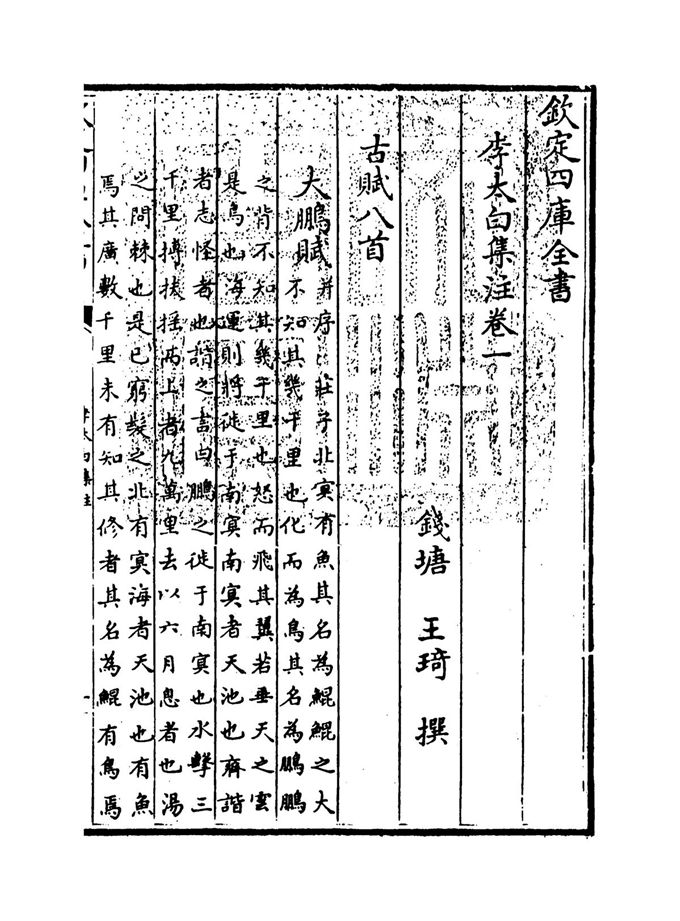 欽定四庫全書
李太白集注卷一
錢塘 王琦 撰
古賦八首
大鵬賦
并序 莊子北㝠有魚其名為鯤鯤之大
不知其幾千里也化而為鳥其名為鵬鵬
之背不知其幾千里也怒而飛其翼若垂天之雲
是鳥也海運則將徙于南㝠南㝠者天池也齊諧
者志怪者也諧之言曰鵬之徙于南㝠也水擊三
千里搏扶揺而上者九萬里去以六月息者也湯
之問棘也是已窮髮之北有㝠海者天池也有魚
焉其廣數千里未有知其修者其名為鯤有鳥焉
李太白集注
一